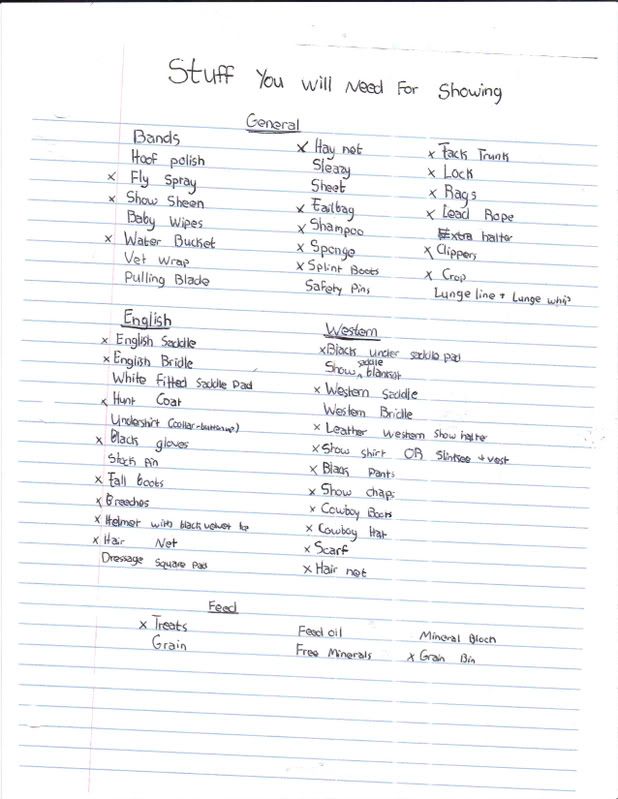 Stuff You Will Need For Showing
General
Bands
Hoof polish
x Fly Spray
x Show Sheen
Baby Wipes
x Water Bucket
Vet Wrap
Pulling Blade
x Hay net
Sleazy
Sheet
x Tailbag
x Shampoo
x Sponge
x Splint Boots
Safety Pins
x Tack Trunk
x Lock
x Rags
x Lead Rope
Extra halter
x Clippers
x Crop
Lunge line + Lunge whip
English
x English Saddle
x English Bridle
White Fitted Saddle Pad
x Hunt Coat
Undershirt (collar-buttonup)
x Black gloves
Stock Pin
x Tall boots
x Breeches
x Helmet with black velvet
x Hair Net
Dressage Square Pad
Western
x Black under saddle pad
Show saddle blanket
x Western Saddle
Western Bridle
x Leather Western Show halter
x Show shirt OR Slinkee + vest
x Black Pants
x Show chaps
x Cowboy Boots
x Cowboy Hat
x Scarf
x Hair net
Feed
x Treats
Grain
Feed oil
Free Minerals
Mineral Block
x Grain Bin